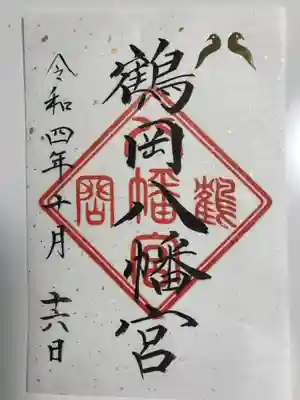 鶴岡八幡宮
令和四年十月十六日
鶴
岡
八幡宮